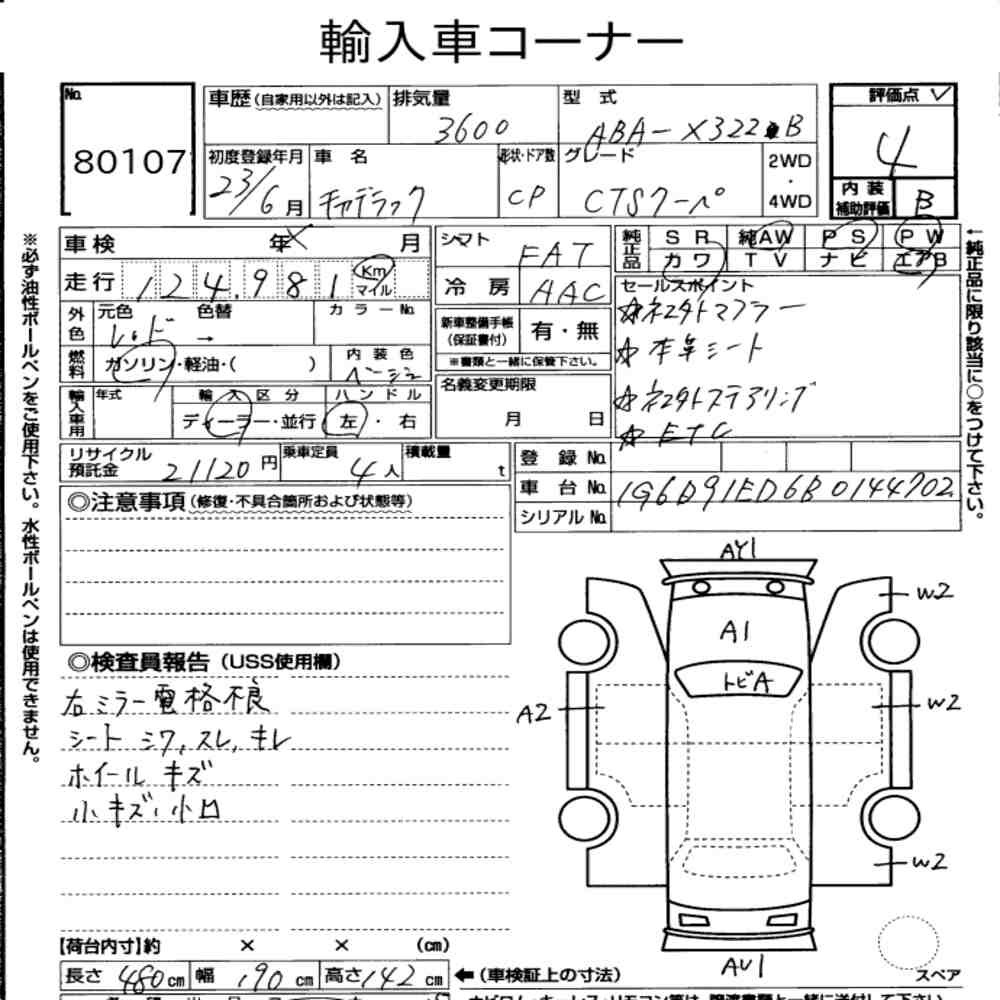 輸入車コーナー
No. 80107
車歴 (自家用以外は記入)
排気量 3600
型式 ABA-X322B
評価点 4
初度登録年月 23/6月
車名 キャデラック
形状・ドア数 CP
グレード CTSクーペ
2WD・4WD
内装補助評価 B
車検 年 月
シフト FAT
純正品 SR 純AW PS PW
カワ TV ナビ エアB
走行 124,981 Km マイル
冷房 AAC
セールスポイント
外色 元色 レッド 色替 → カラーNo.
☆社外マフラー
新車整備手帳(保証書付) 有・無
※書類と一緒に保管下さい。
☆本革シート
燃料 ガソリン・軽油・( )
内装色 ベージュ
名義変更期限 月 日
☆ETC
輸入車用 年式 輸入区分 ディーラー・並行 ハンドル 左・右
リサイクル預託金 21120円
乗車定員 4人
積載量 t
登録No.
車台No. 1G6D91ED6B0144702
シリアルNo.
◎注意事項 (修復・不具合箇所および状態等)
◎検査員報告 (USS使用欄)
右ミラー電格不良
シート シワ、スレ、キレ
ホイール キズ
小キズ、小凹
AY1
W2
A1
トビA
A2
W2
W2
AU1
スペア
【荷台内寸】約 × × (cm)
長さ 480cm 幅 190cm 高さ 142cm
←(車検証上の寸法)
※必ず油性ボールペンをご使用下さい。水性ボールペンは使用できません。
←純正品に限り該当に○をつけて下さい。